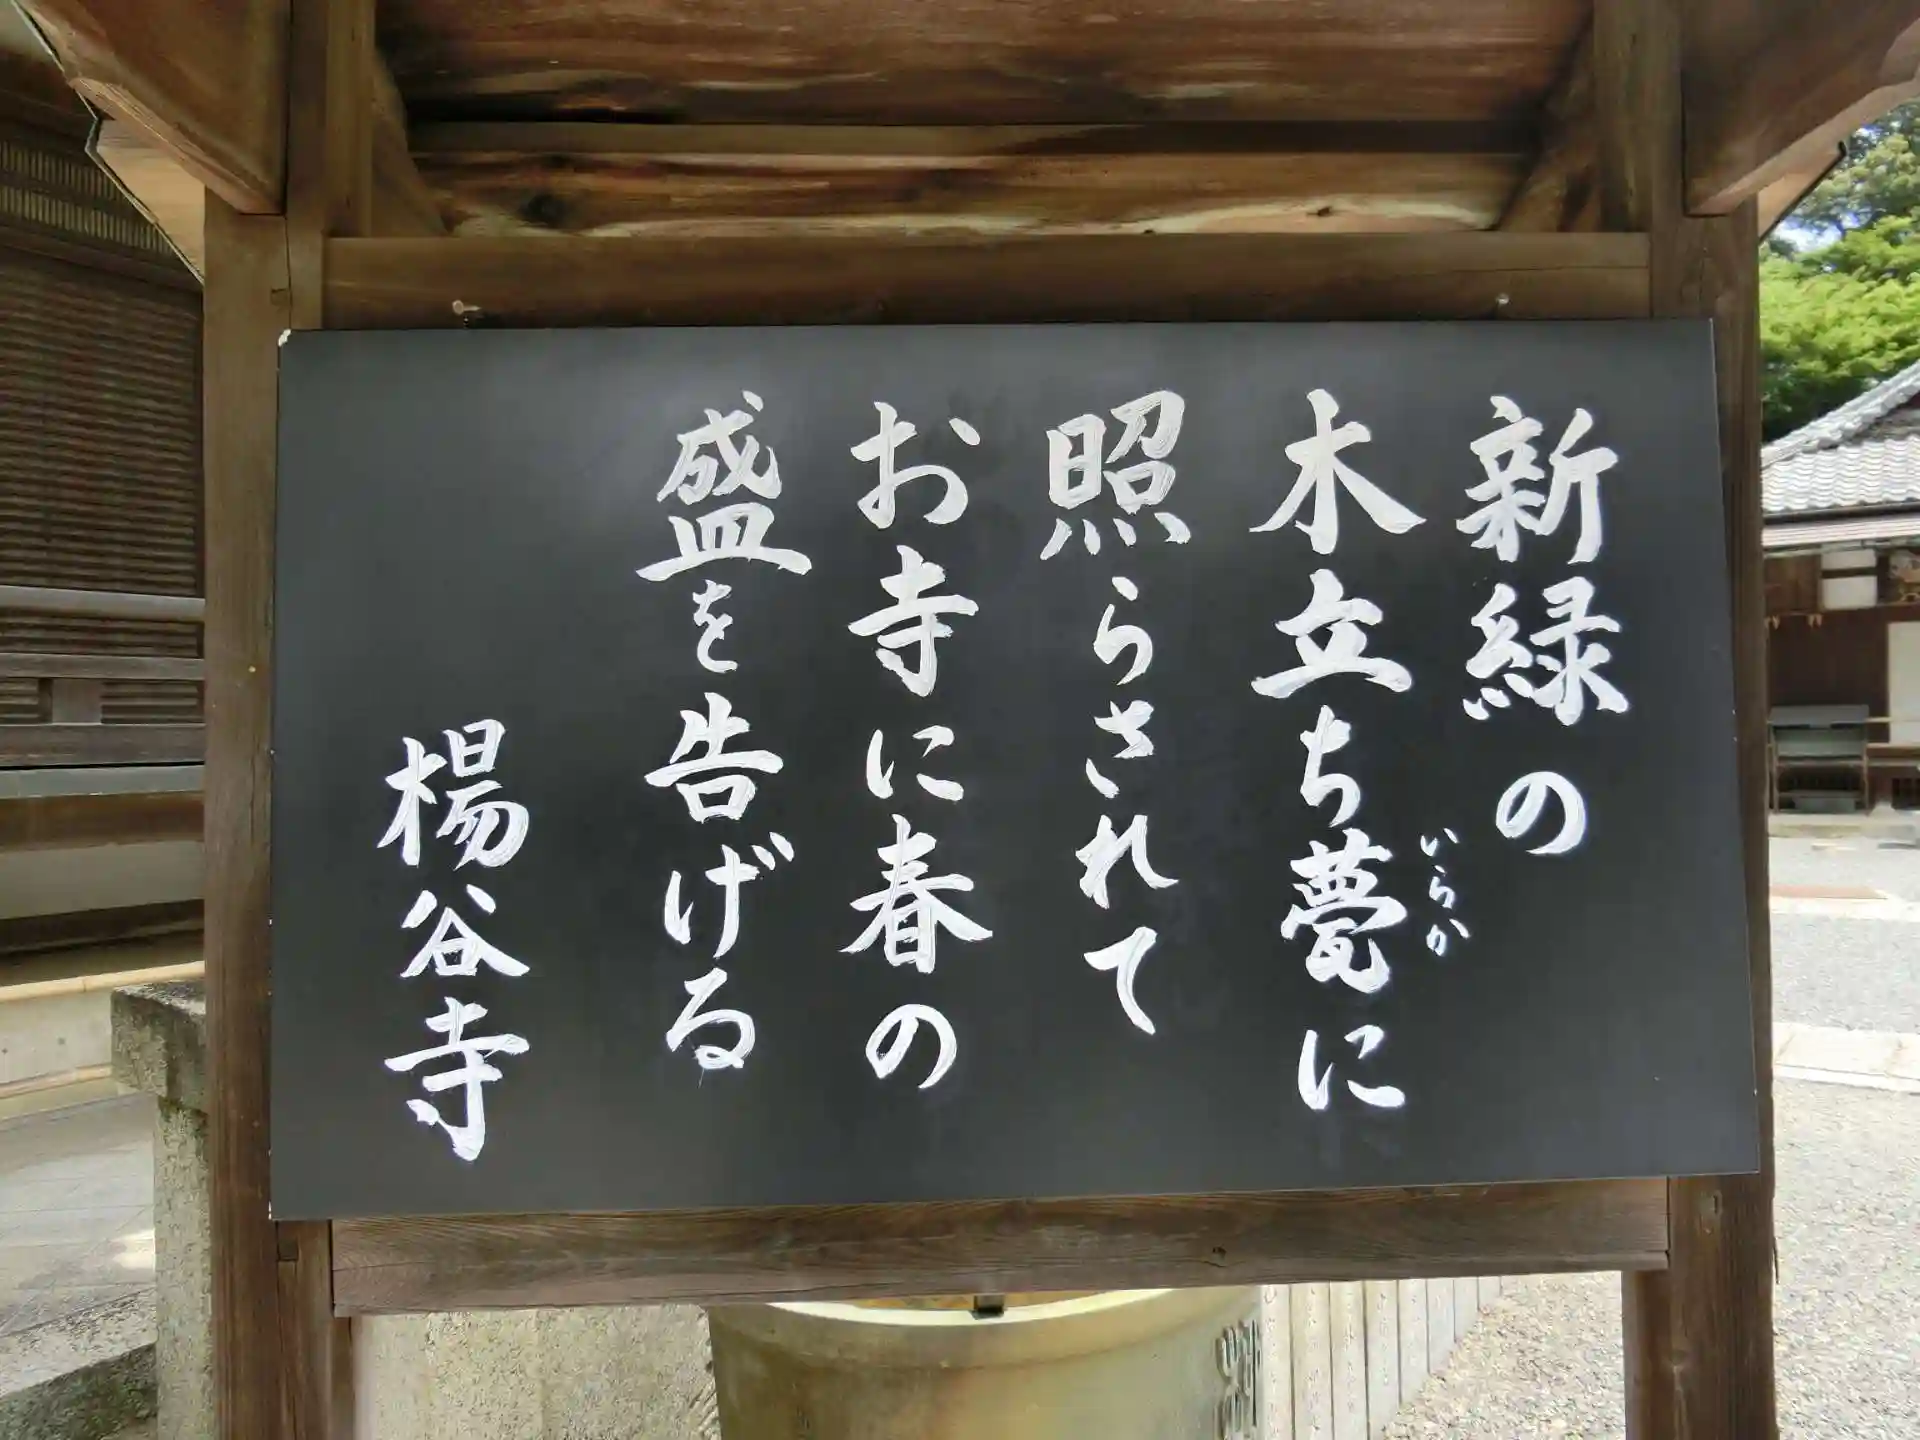 新緑の
木立ち甍に
いらか
照らされて
お寺に春の
盛を告げる
楊谷寺